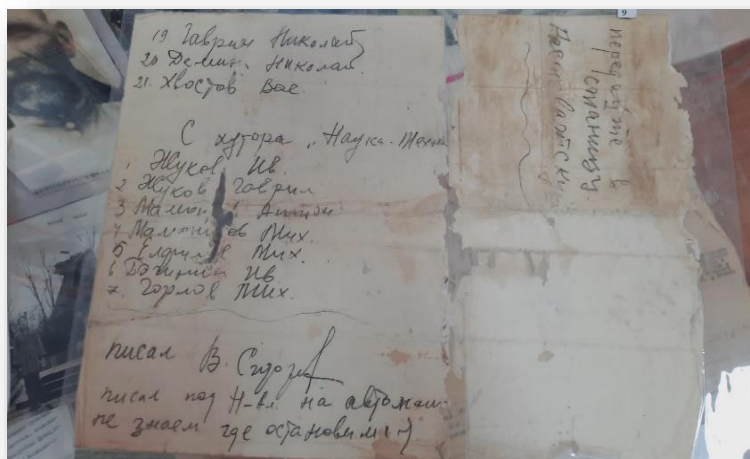 19 Гаврин Николай
20 Демин. Николай.
21. Хвостов Вас.
С хутора „Наука-
1 Жуков Ив.
2 Жуков Гаврил
3 Антон
4 Мамонтов Мих.
5 Мих.
6 Ив
7. Горлов Мих.
писал В. Сидоров
писал под Н-вл на автомаш-
не знаем где остановимся
передайте в
станицу
9